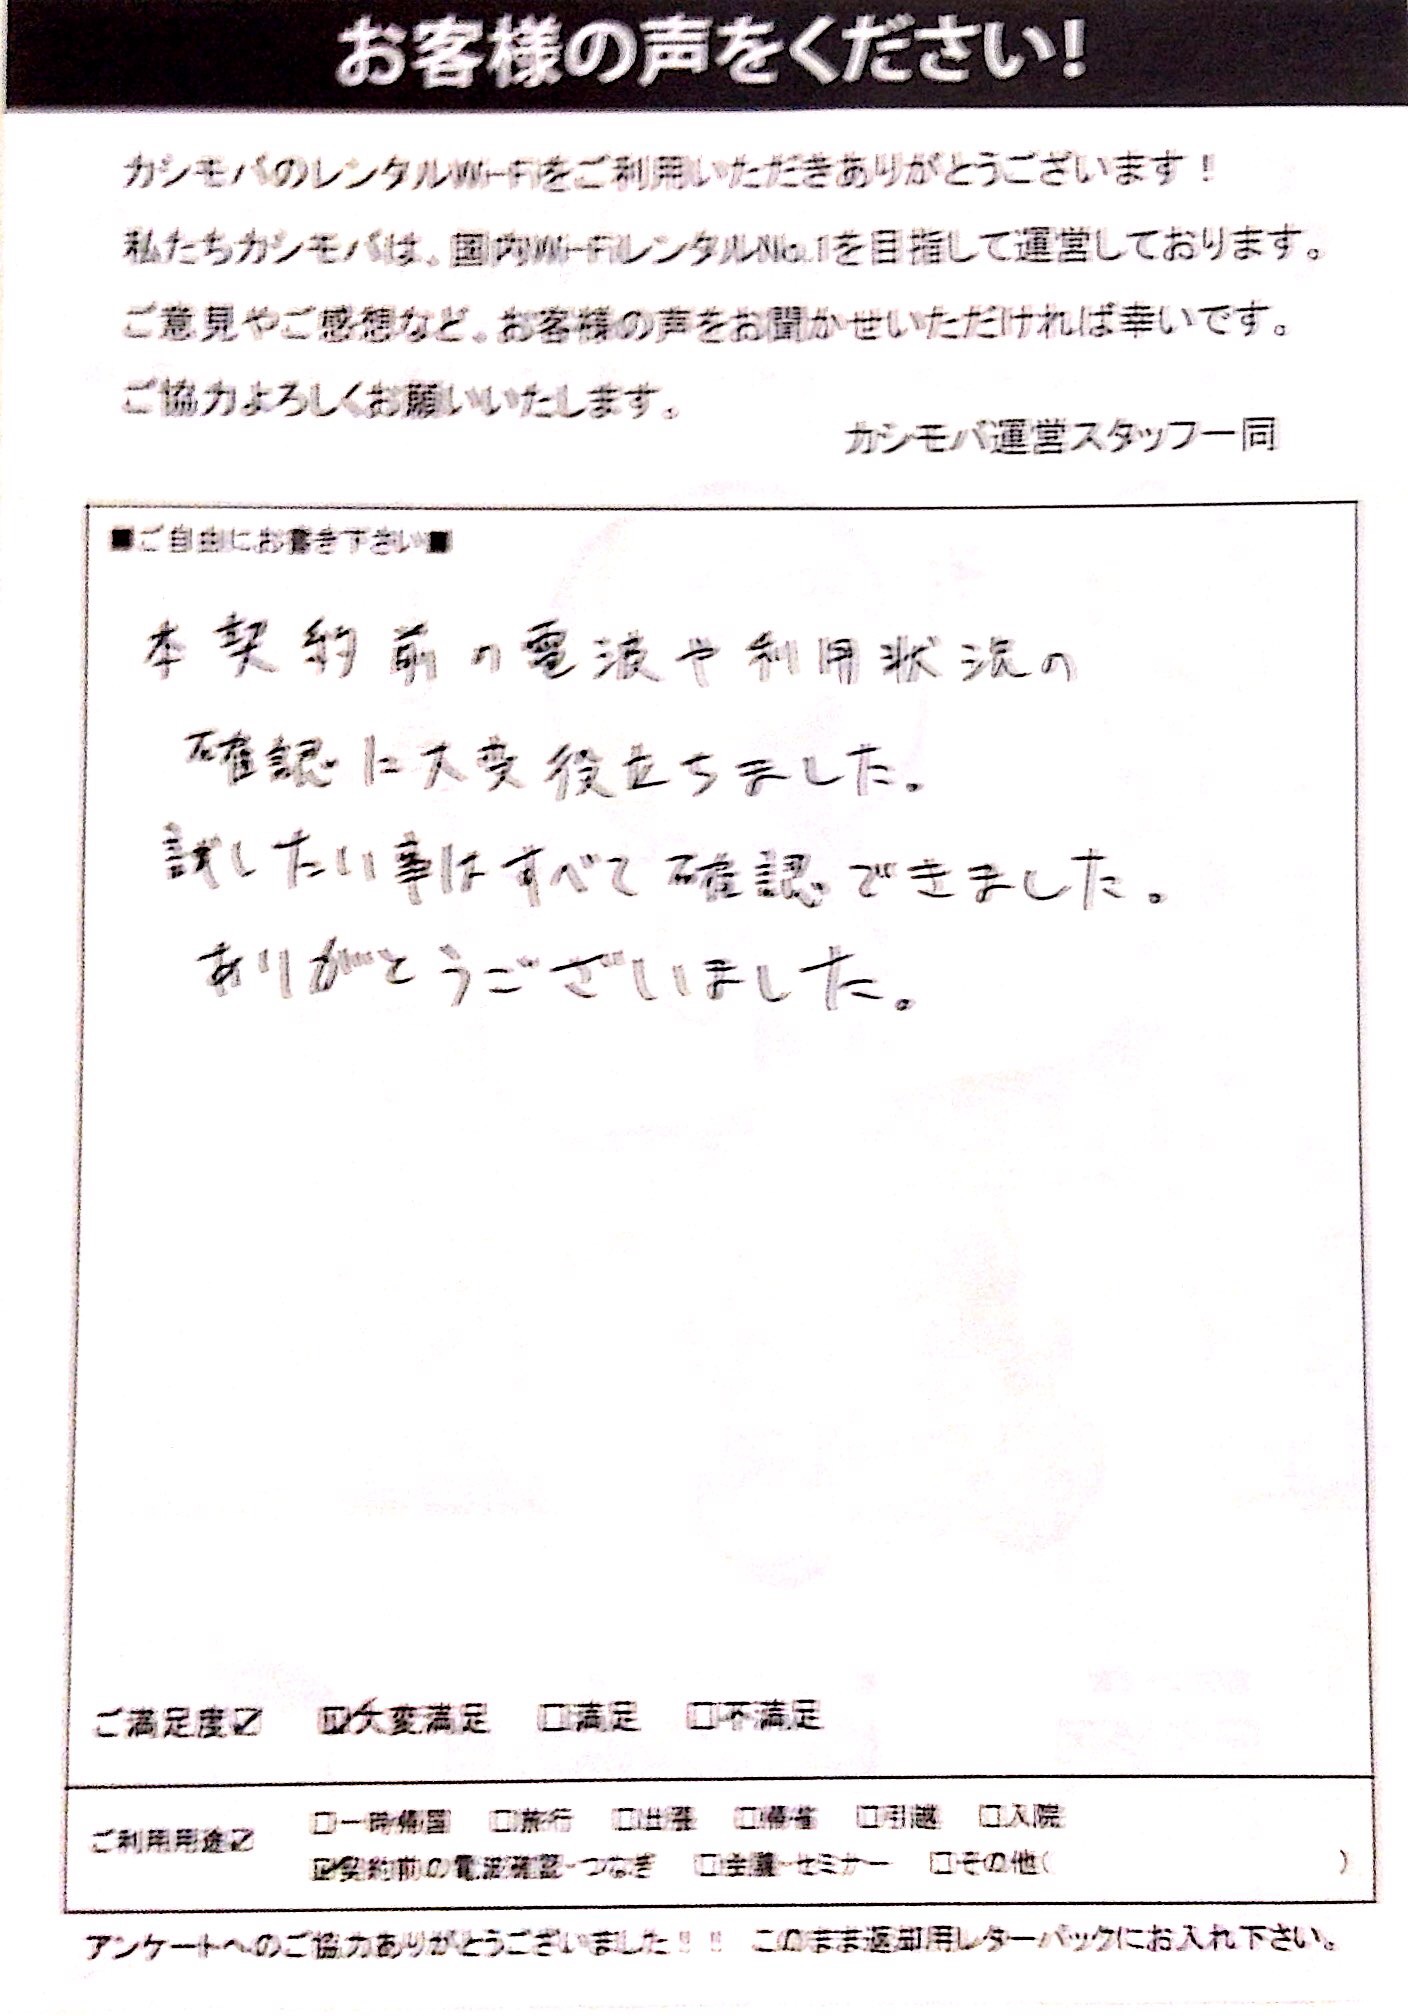 お客様の声をください!
カシモバのレンタルWi-Fiをご利用いただきありがとうございます！
私たちカシモバは、国内Wi-FiレンタルNo.1を目指して運営しております。
ご意見やご感想など、お客様の声をお聞かせいただければ幸いです。
ご協力よろしくお願いいたします。
カシモバ運営スタッフ一同
■ご自由にお書き下さい■
本契約前の電波や利用状況の
確認に大変役立ちました。
試したい事はすべて確認できました。
ありがとうございました。
ご満足度☑ ☑大変満足 □満足 □不満足
ご利用用途☑ □一時帰国 □旅行 □出張 □帰省 □引越 □入院
☑契約前の電波確認・つなぎ □会議・セミナー □その他( )
アンケートへのご協力ありがとうございました！！ このまま返却用レターパックにお入れ下さい。